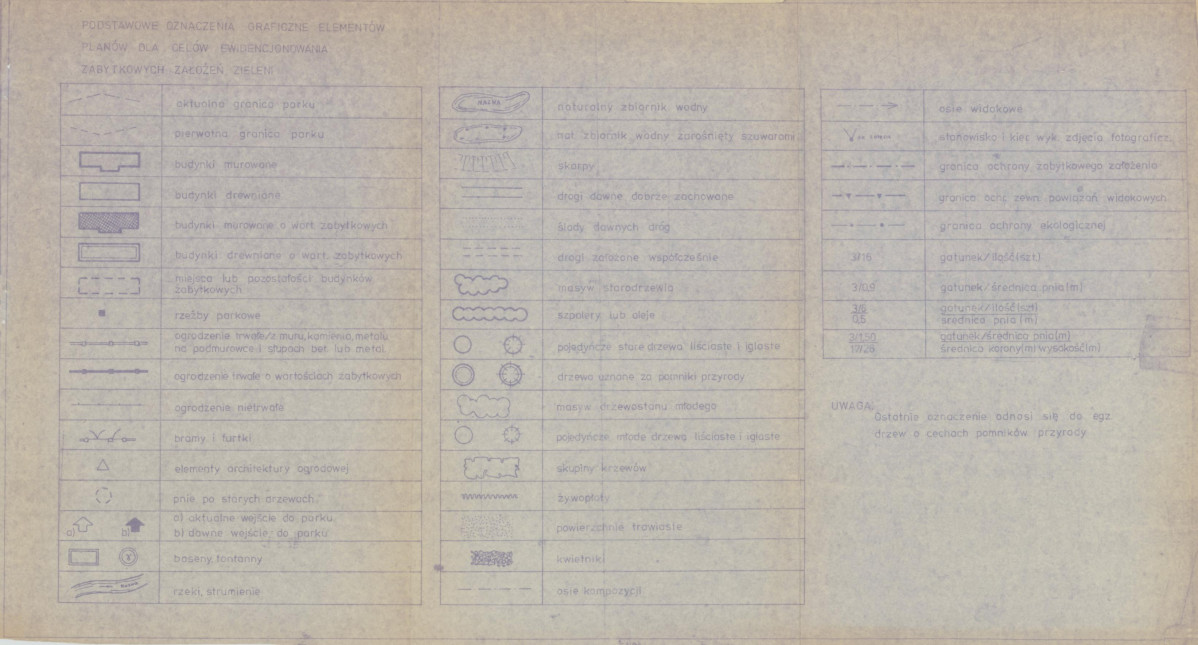 PODSTAWOWE OZNACZENIA GRAFICZNE ELEMENTÓW
PLANÓW DLA CELÓW EWIDENCJONOWANIA
ZABYTKOWYCH ZAŁOŻEŃ ZIELENI
aktualna granica parku
pierwotna granica parku
budynki murowane
budynki drewniane
budynki murowane o wart. zabytkowych
budynki drewniane o wart. zabytkowych
miejsca lub pozostałości budynków
zabytkowych
rzeźby parkowe
ogrodzenie trwałe/z muru, kamienia, metalu
na podmurówce i słupach bet. lub metal.
ogrodzenie trwałe o wartościach zabytkowych
ogrodzenie nietrwałe
bramy i furtki
elementy architektury ogrodowej
pnie po starych drzewach
a) b)
a) aktualne wejście do parku
b) dawne wejście do parku
baseny, fontanny
rzeki, strumienie
naturalny zbiornik wodny
nat. zbiornik wodny zarośnięty szuwarami
skarpy
drogi dawne dobrze zachowane
ślady dawnych dróg
drogi założone współcześnie
masyw starodrzewia
szpalery lub aleje
pojedyńcze stare drzewa liściaste i iglaste
drzewa uznane za pomniki przyrody
masyw drzewostanu młodego
pojedyńcze młode drzewa liściaste i iglaste
skupiny krzewów
żywopłoty
powierzchnie trawiaste
kwietniki
osie kompozycji
osie widokowe
stanowisko i kier. wyk. zdjęcia fotograficz.
granica ochrony zabytkowego założenia
granica ochr. zewn. powiązań widokowych
granica ochrony ekologicznej
3/15 gatunek/ilość(szt.)
3/0,9 gatunek/średnica pnia(m)
3/6 gatunek/ilość(szt)
0,5 średnica pnia (m)
2/1,50 gatunek/średnica pnia(m)
17/28 średnica korony(m)/wysokość(m)
UWAGA:
Ostatnie oznaczenie odnosi się do egz.
drzew o cechach pomników przyrody